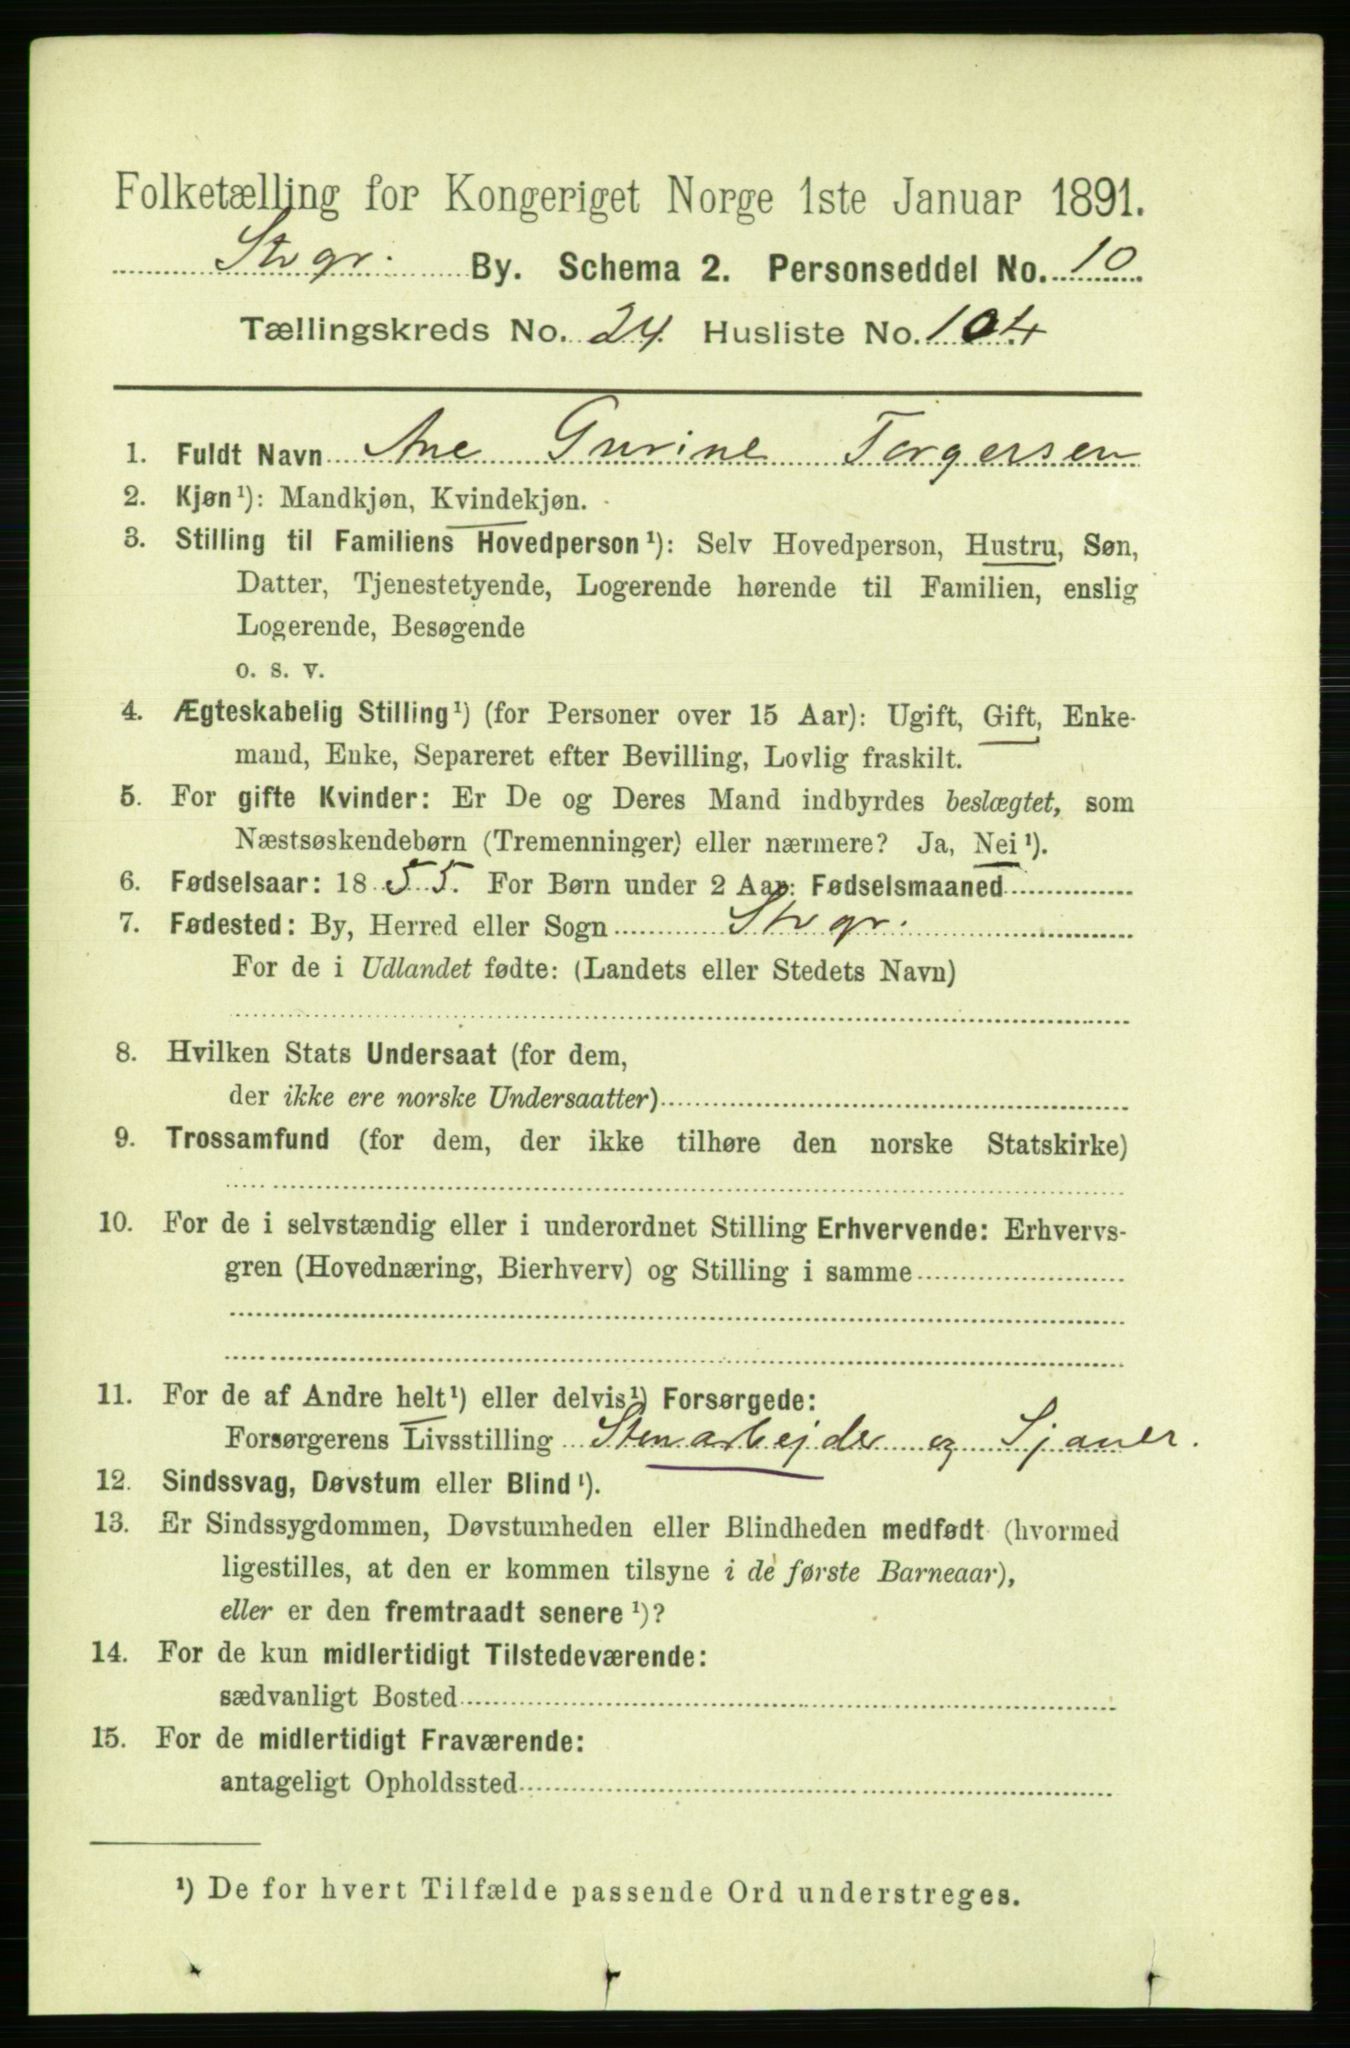 Folketælling for Kongeriget Norge 1ste Januar 1891.
Stvgr. By. Schema 2. Personseddel No. 10
Tællingskreds No. 24 Husliste No. 104
1. Fuldt Navn Ane Gurine Torgersen
2. Kjøn¹): Mandkjøn, Kvindekjøn.
3. Stilling til Familiens Hovedperson¹): Selv Hovedperson, Hustru, Søn,
Datter, Tjenestetyende, Logerende hørende til Familien, enslig
Logerende, Besøgende
o. s. v.
4. Ægteskabelig Stilling¹) (for Personer over 15 Aar): Ugift, Gift, Enke-
mand, Enke, Separeret efter Bevilling, Lovlig fraskilt.
5. For gifte Kvinder: Er De og Deres Mand indbyrdes beslægtet, som
Næstsøskendebørn (Tremenninger) eller nærmere? Ja, Nei¹).
6. Fødselsaar: 1855. For Børn under 2 Aar: Fødselsmaaned
7. Fødested: By, Herred eller Sogn Stvgr.
For de i Udlandet fødte: (Landets eller Stedets Navn)
8. Hvilken Stats Undersaat (for dem,
der ikke ere norske Undersaatter)
9. Trossamfund (for dem, der ikke tilhøre den norske Statskirke)
10. For de i selvstændig eller i underordnet Stilling Erhvervende: Erhvervs-
gren (Hovednæring, Bierhverv) og Stilling i samme
11. For de af Andre helt¹) eller delvis¹) Forsørgede:
Forsørgerens Livsstilling Stenarbejder og Sjauer.
12. Sindssvag, Døvstum eller Blind¹).
13. Er Sindssygdommen, Døvstumheden eller Blindheden medfødt (hvormed
ligestilles, at den er kommen tilsyne i de første Barneaar),
eller er den fremtraadt senere¹)?
14. For de kun midlertidigt Tilstedeværende:
sædvanligt Bosted
15. For de midlertidigt Fraværende:
antageligt Opholdssted
¹) De for hvert Tilfælde passende Ord understreges.